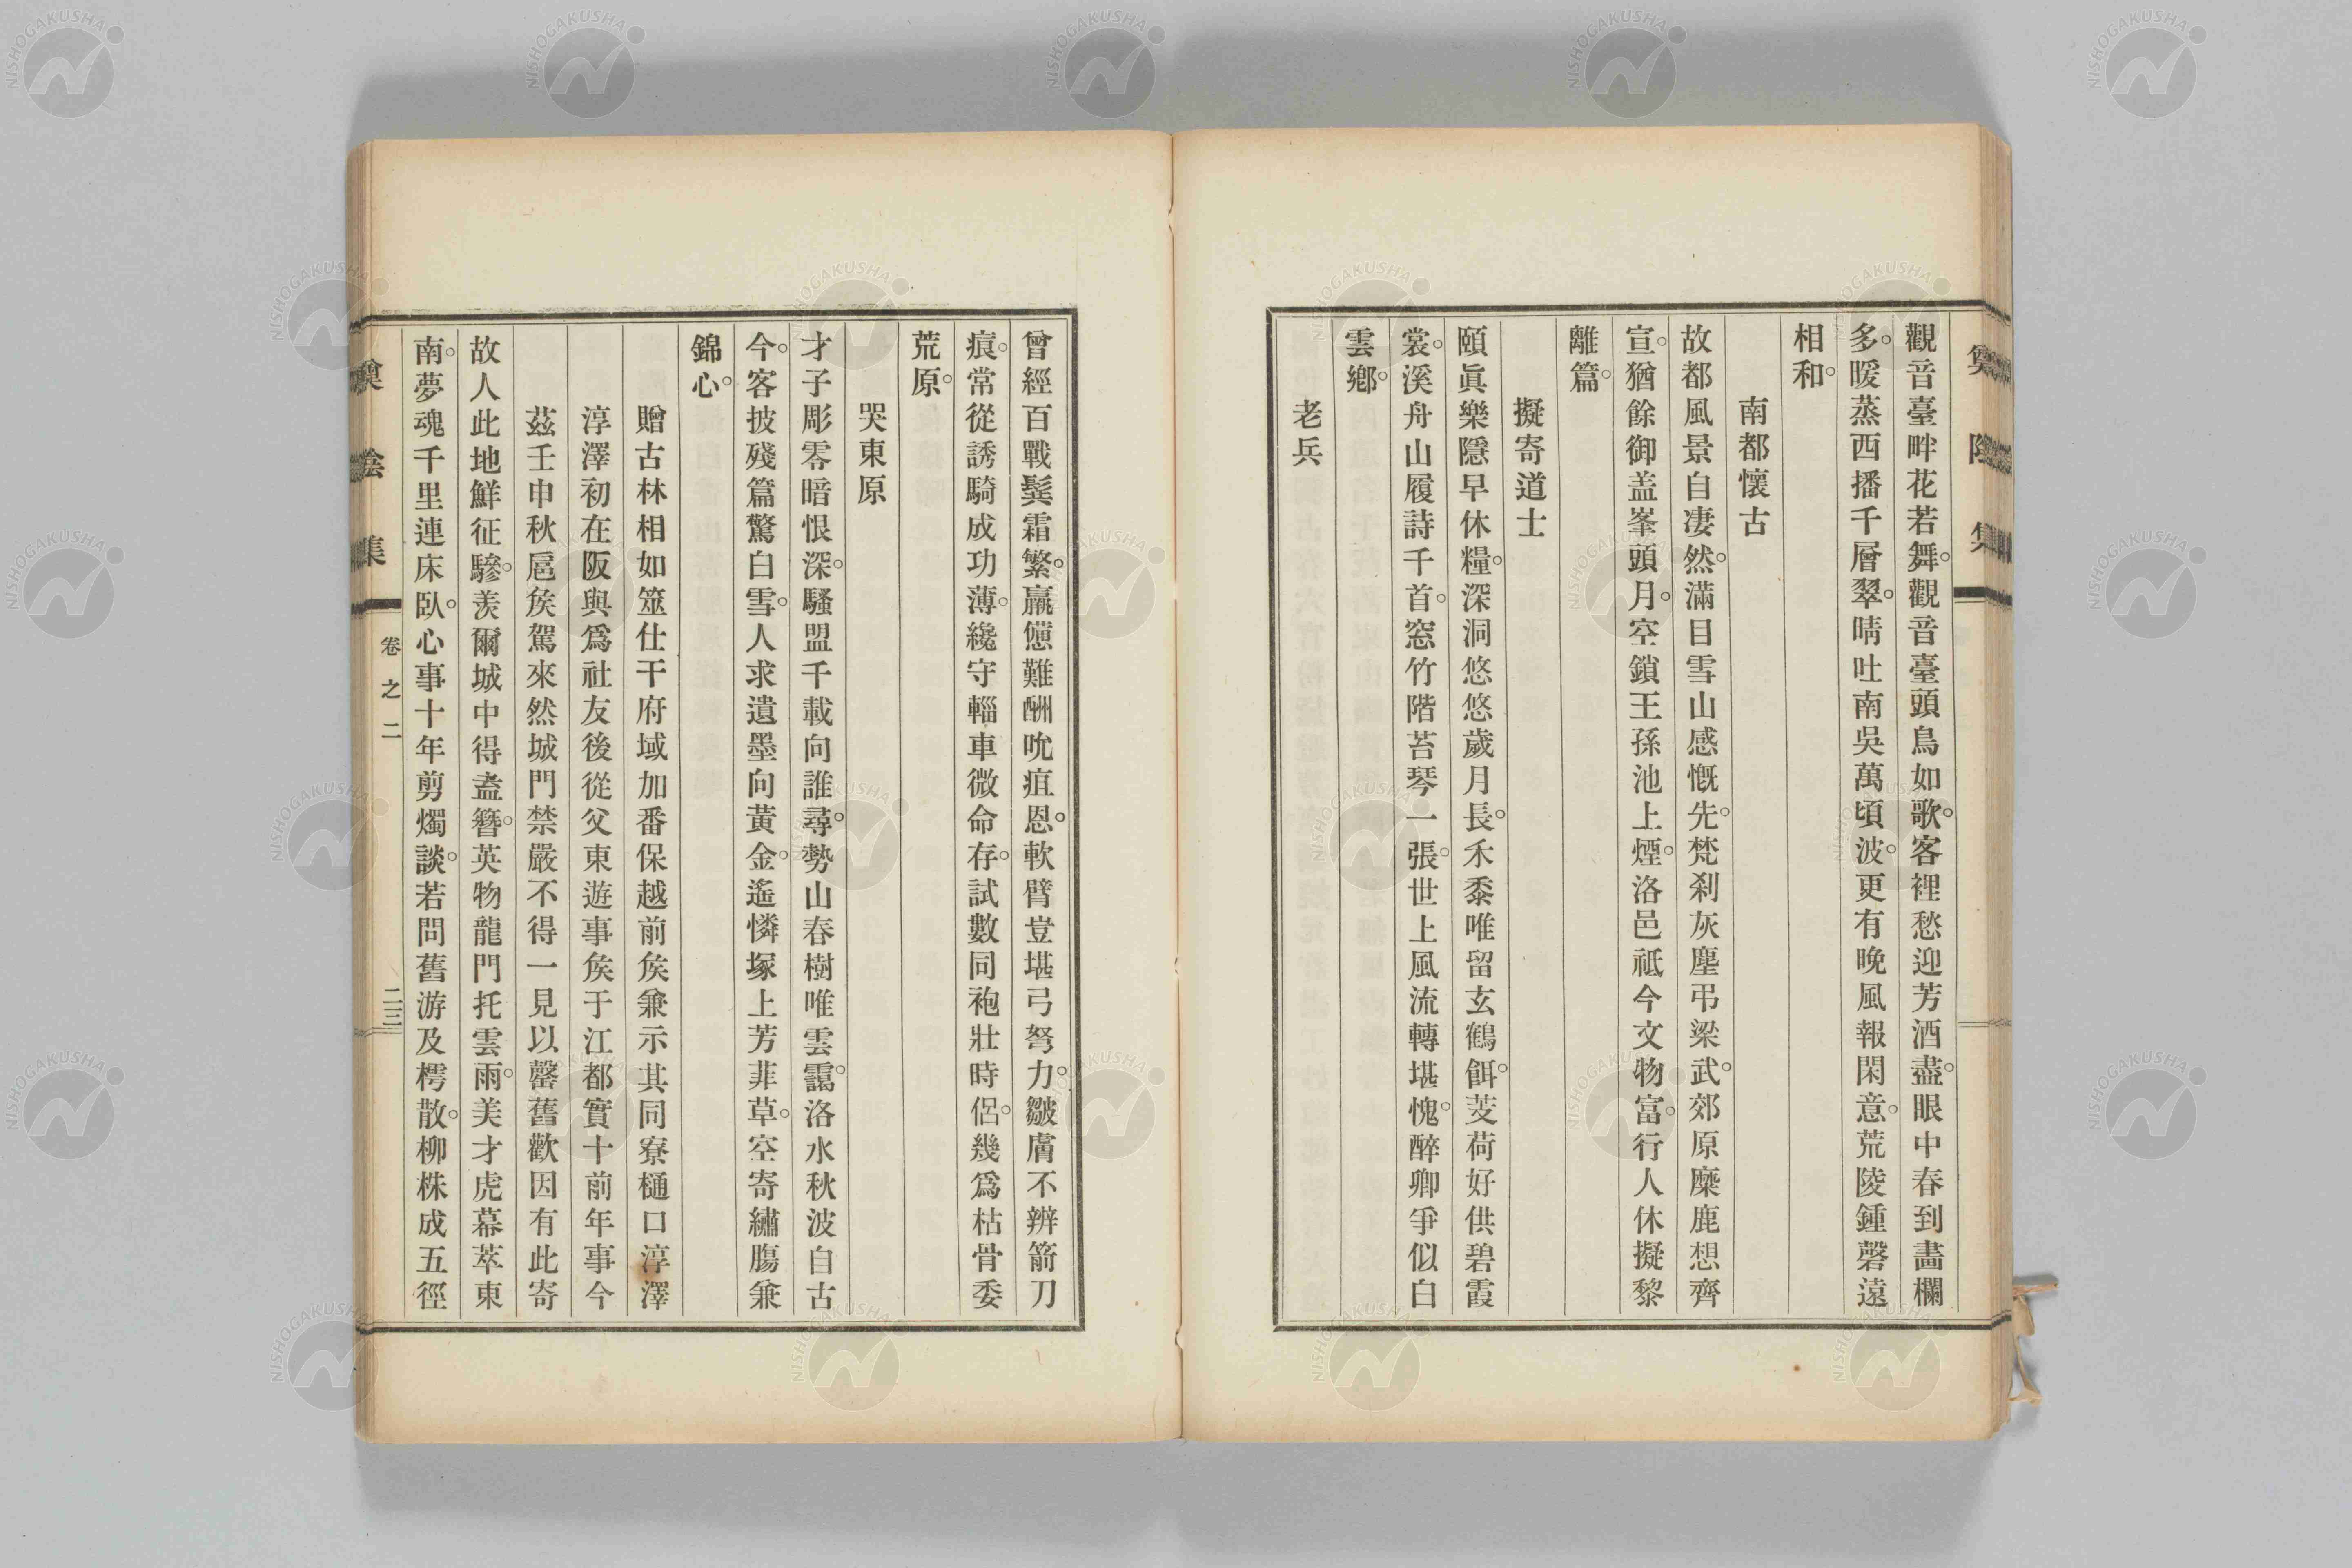 觀音臺畔花若舞。觀音臺頭鳥如歌。客裡愁迎芳酒盡。眼中春到畵欄
多。暖蒸西播千層翠。晴吐南吳萬頃波。更有晚風報閑意。荒陵鍾磬遠
相和。
南都懷古
故都風景自凄然。滿目雪山感慨先。梵刹灰塵弔梁武。郊原麋鹿想齊
宣。猶餘御盖峯頭月。空鎖王孫池上煙。洛邑祗今文物富。行人休擬黎
離篇。
擬寄道士
頤眞樂隱早休糧。深洞悠悠歲月長。禾黍唯留玄鶴餌。芰荷好供碧霞
裳。溪舟山履詩千首。窓竹階苔琴一張。世上風流轉堪愧。醉卿爭似白
雲鄕。
老兵
曾經百戰鬂霜繁。羸憊難酬吮疽恩。軟臂豈堪弓弩力。皺膚不辨箭刀
痕。常從誘騎成功薄。纔守輜車微命存。試數同袍壯時侶。幾爲枯骨委
荒原。
哭東原
才子彫零暗恨深。騷盟千載向誰尋。勢山春樹唯雲靄。洛水秋波自古
今。客披殘篇驚白雪。人求遺墨向黃金。遙憐塚上芳菲草。空寄繡膓兼
錦心。
贈古林相如筮仕干府域加番保越前矦兼示其同寮樋口淳澤
淳澤初在阪與爲社友後從父東遊事矦于江都實十前年事今
茲壬申秋扈矦駕來然城門禁嚴不得一見以罄舊歡因有此寄
故人此地鮮征驂。羡爾城中得盍簪。英物龍門托雲雨。美才虎幕萃東
南。夢魂千里連床臥。心事十年剪燭談。若問舊游及樗散。柳株成五徑
奠陰集
卷之二
二三